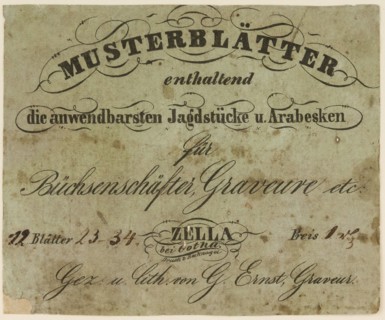 MUSTERBLÄTTER
enthaltend
die anwendbarsten Jagdstücke u. Arabesken
für
Büchsenschäfter, Graveure etc.
12 Blätter 23-34. ZELLA Preis 1
bei Gotha
Gez. u. lith. von G. Ernst, Graveur.